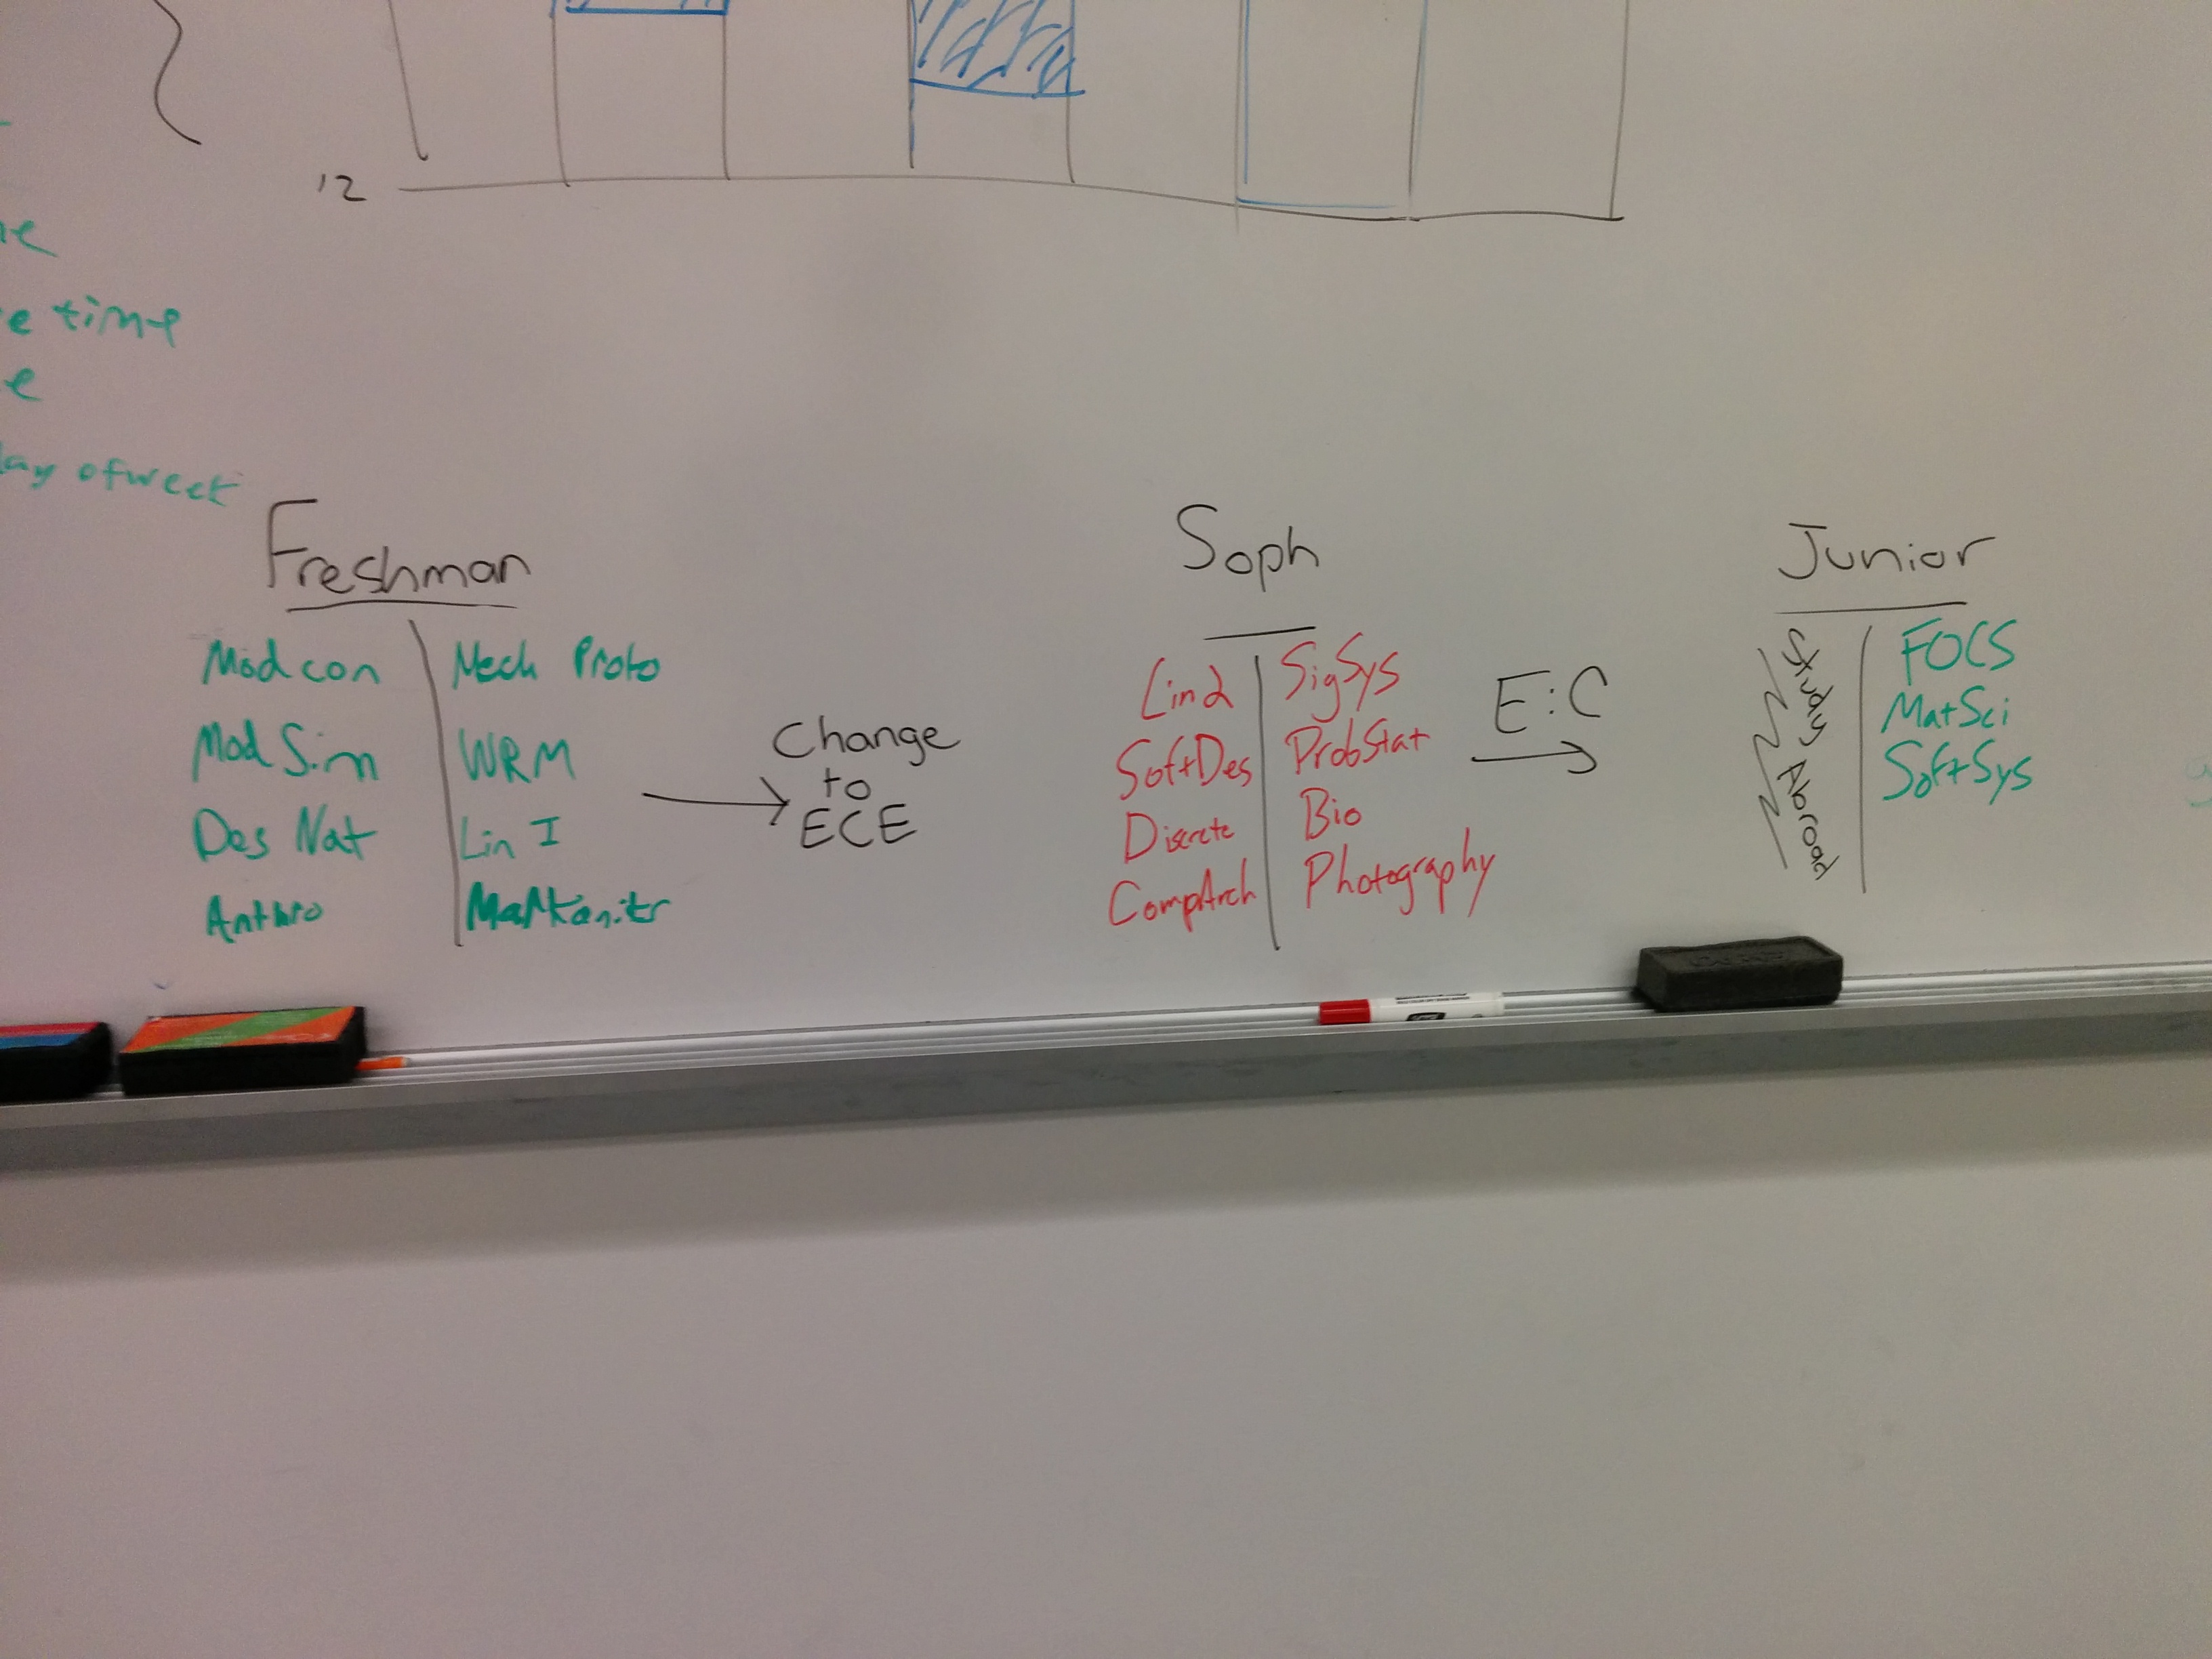 12
e time
e
ay ofweek
Freshman
Modcon
Mod Sim
Des Nat
Anthro
Mech Proto
WRM
Lin I
Change
to
ECE
Soph
Lin2
SoftDes
Discrete
CompArch
SigSys
ProbStat
Bio
Photography
E:C
Junior
Study Abroad
FOCS
MatSci
SoftSys